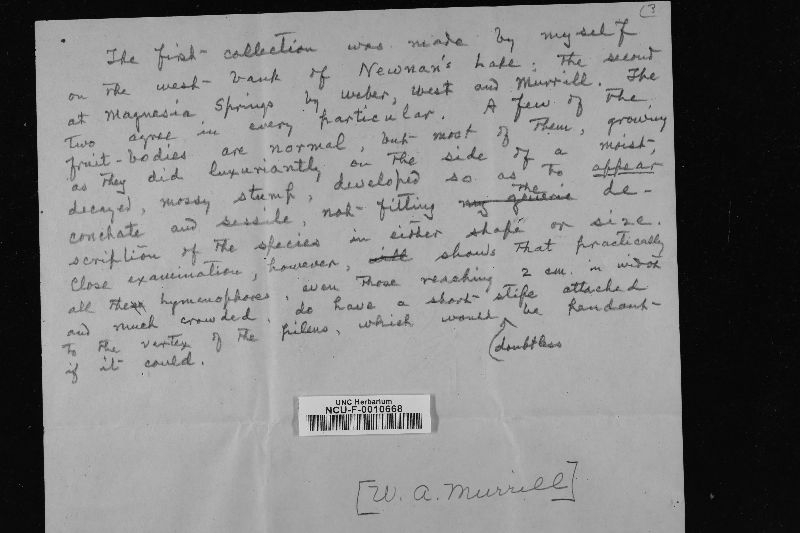 3
The first collection was made by myself
on the west bank of Newnan's Lake; the second
at Magnesia Springs by Weber, West and Murrill. The
two agree in every particular. A few of the
fruit-bodies are normal, but most of them, growing
as they did luxuriantly on the side of a moist,
decayed, mossy stump, developed so as to appear
conchate and sessile, not fitting my generic the de-
scription of the species in either shape or size.
Close examination, however, will shows that practically
all these hymenophores, even those reaching 2 cm. in width
and much crowded, do have a short stipe attached
to the vertex of the pileus, which would be pendant
(doubtless
if it could.
UNC Herbarium
NCU-F-0010668
[W. A. Murrill]